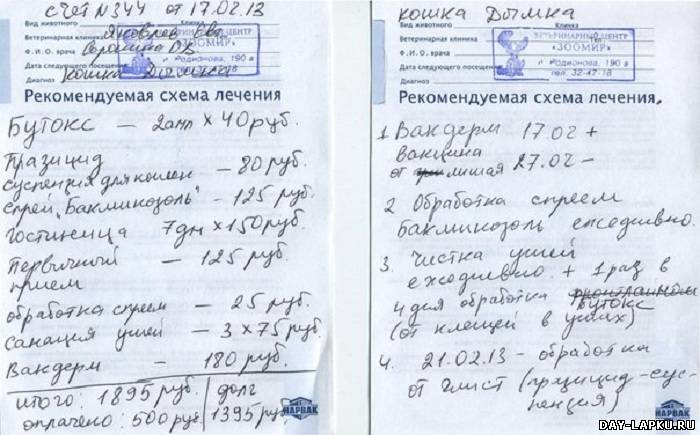 Счёт № 344 от 17.02.13
Вид животного Клиника
Ветеринарная клиника
Ф.И.О. врача
Дата следующего посещения
Диагноз
ВЕТЕРИНАРНЫЙ ЦЕНТР
"ЗООМИР"
Родионова, 190 а
кошка Дымка
Рекомендуемая схема лечения
Бутокс — 2 амп × 40 руб.
Празицид
суспензия для кошек — 80 руб.
спрей "Бакминозоль" — 125 руб.
Гостиница 7 дн × 150 руб.
Первичный — 125 руб.
прием
обработка спреем — 25 руб.
санация ушей — 3 × 75 руб.
Вакдерм — 180 руб.
итого: 1895 руб. долг
оплачено: 500 руб 1395 руб.
НАРВАК
кошка Дымка
Вид животного Клиника
Ветеринарная клиника
Ф.И.О. врача
Дата следующего посещения
Диагноз
ВЕТЕРИНАРНЫЙ ЦЕНТР
"ЗООМИР"
Родионова, 190 а
тел. 32-47-18
Рекомендуемая схема лечения
1 Вакдерм 17.02 +
вакцина
от лишая 27.02 –
2 Обработка спреем
Бакминозоль ежедневно.
3. Чистка ушей
ежедневно. + 1 раз в
4 дня обработка
Бутокс
(от клещей в ушах)
4. 21.02.13 - обработка
от глист (празицид-сус-
пензия)
НАРВАК
DAY-LAPKU.RU